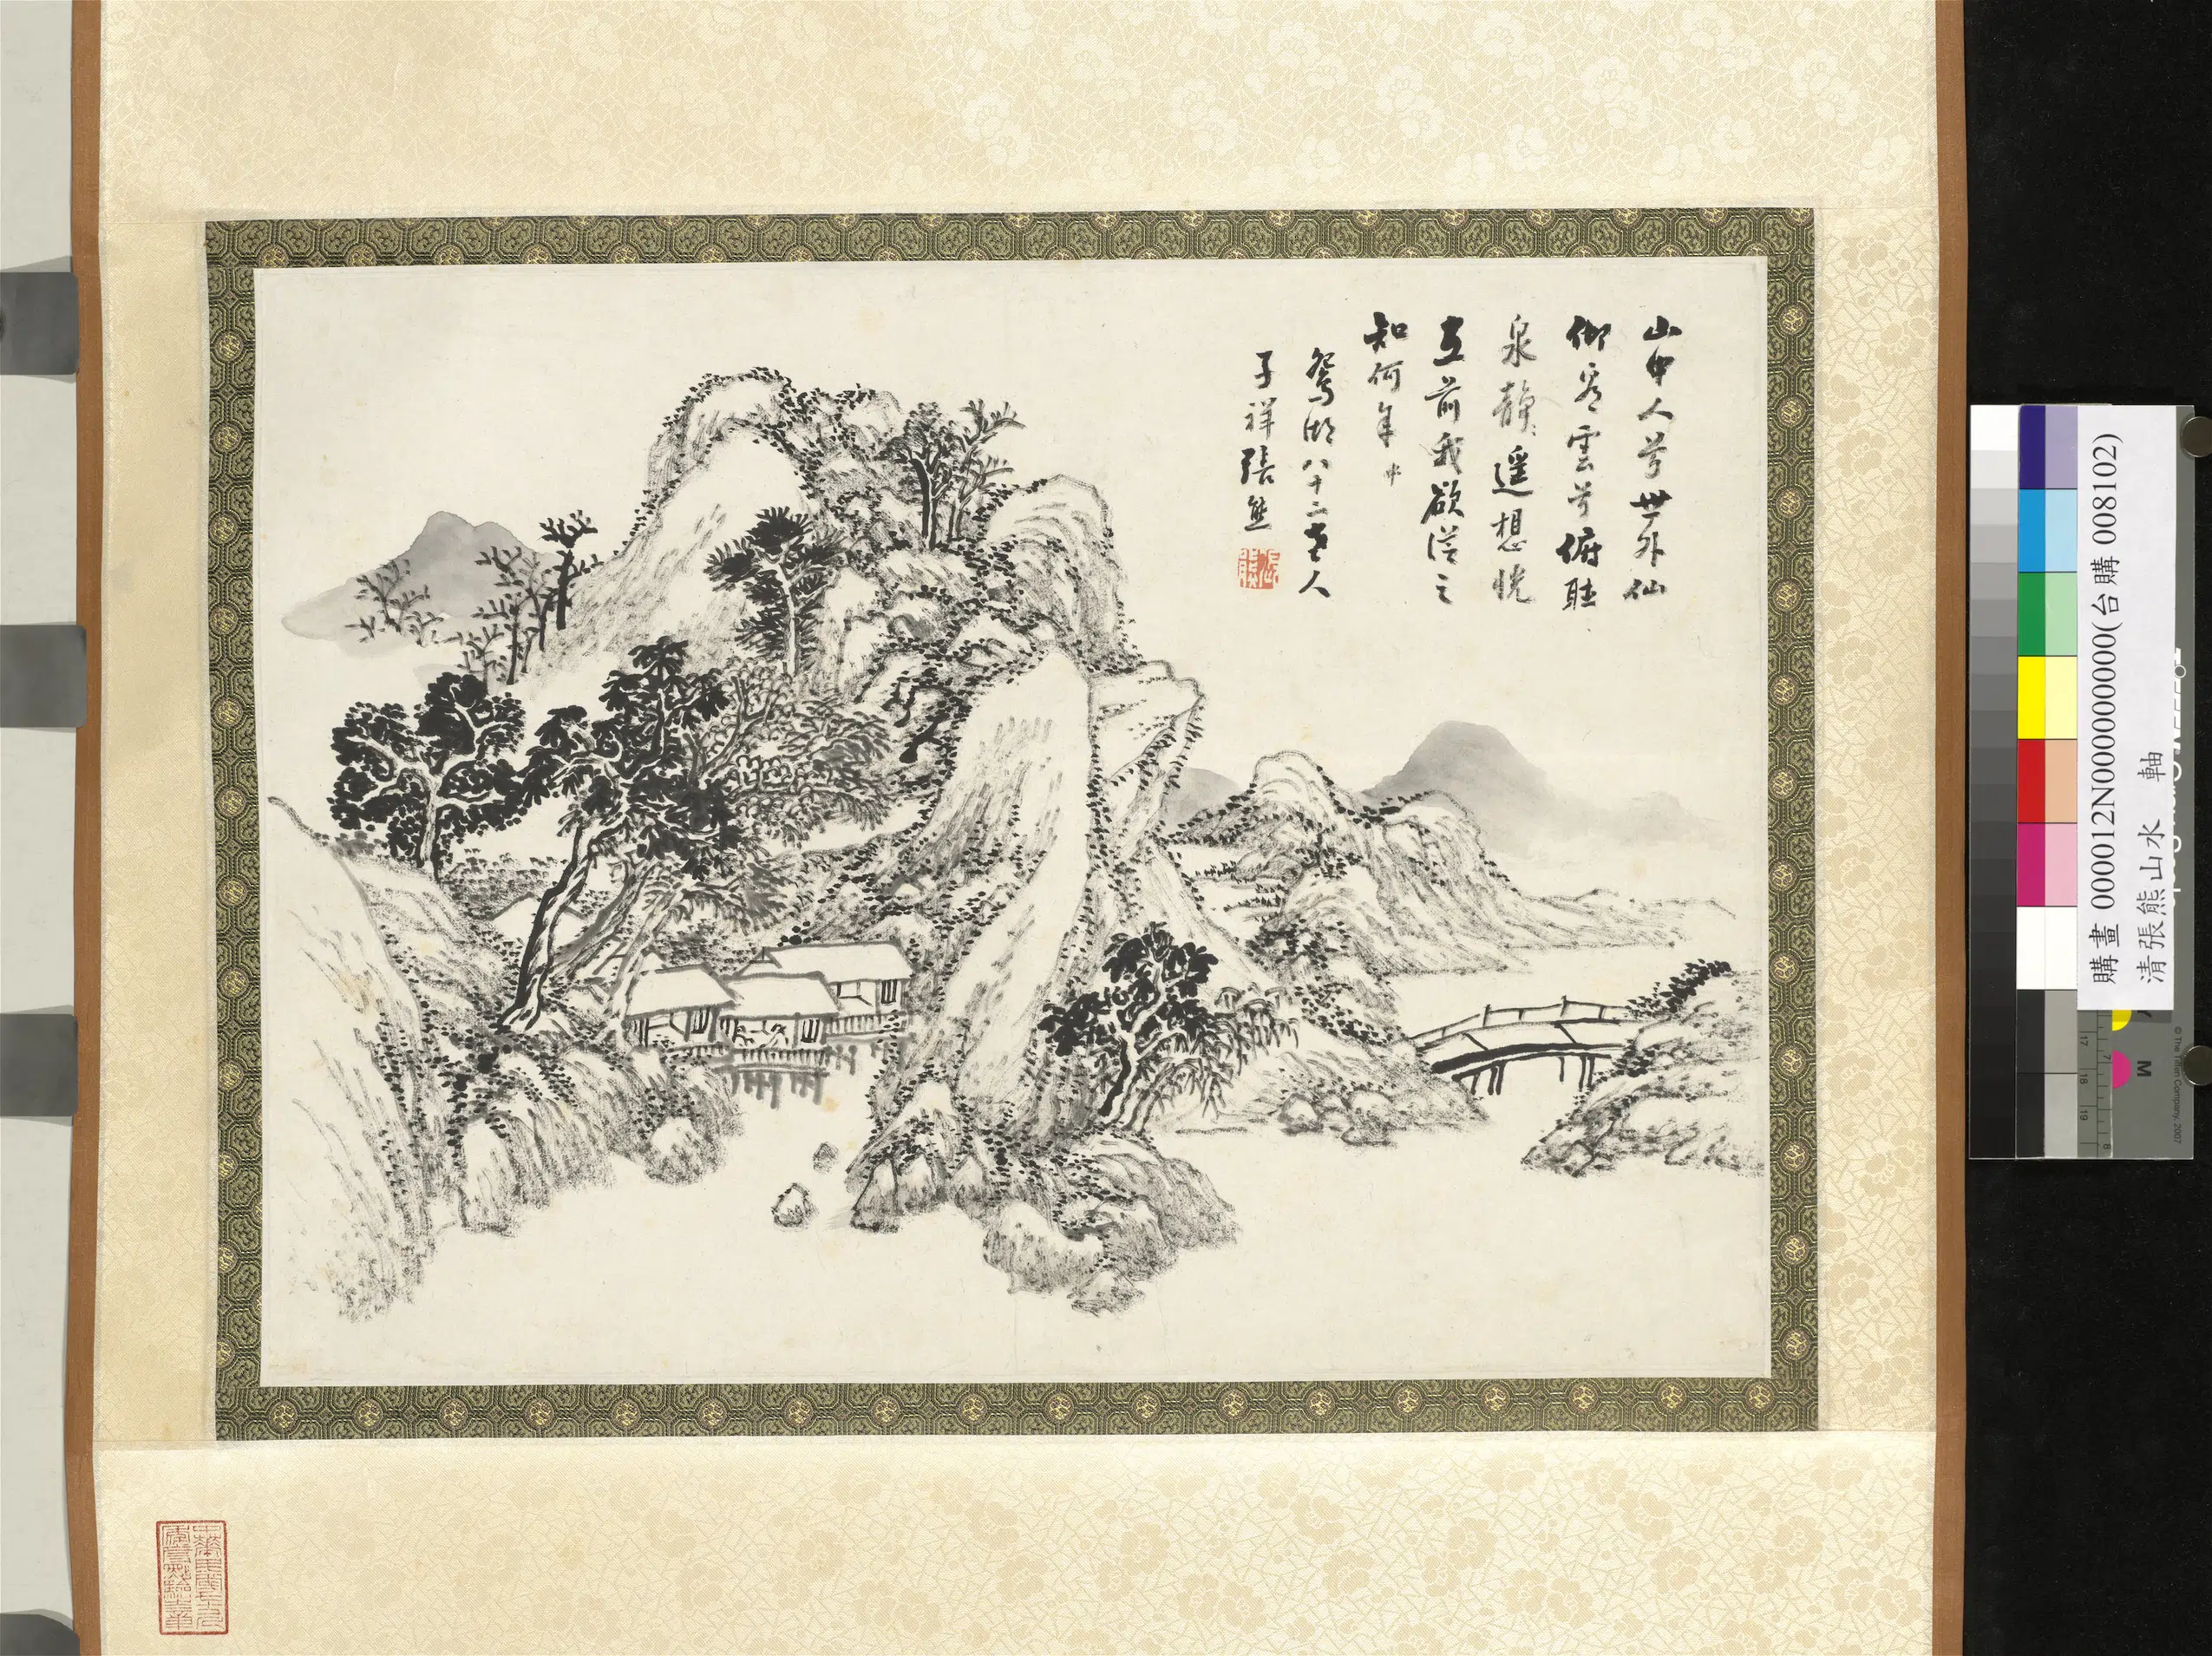 山中人兮世外仙
仰看雲兮俯聽
泉靜遙想恍
在前我欲從之
知何年
鴛湖八十二老人
子祥張熊
張熊
購畫 000012N000000000(台購 008102)
清張熊山水 軸
© The Tiffen Company, 2007
M
17 18 19
7 8